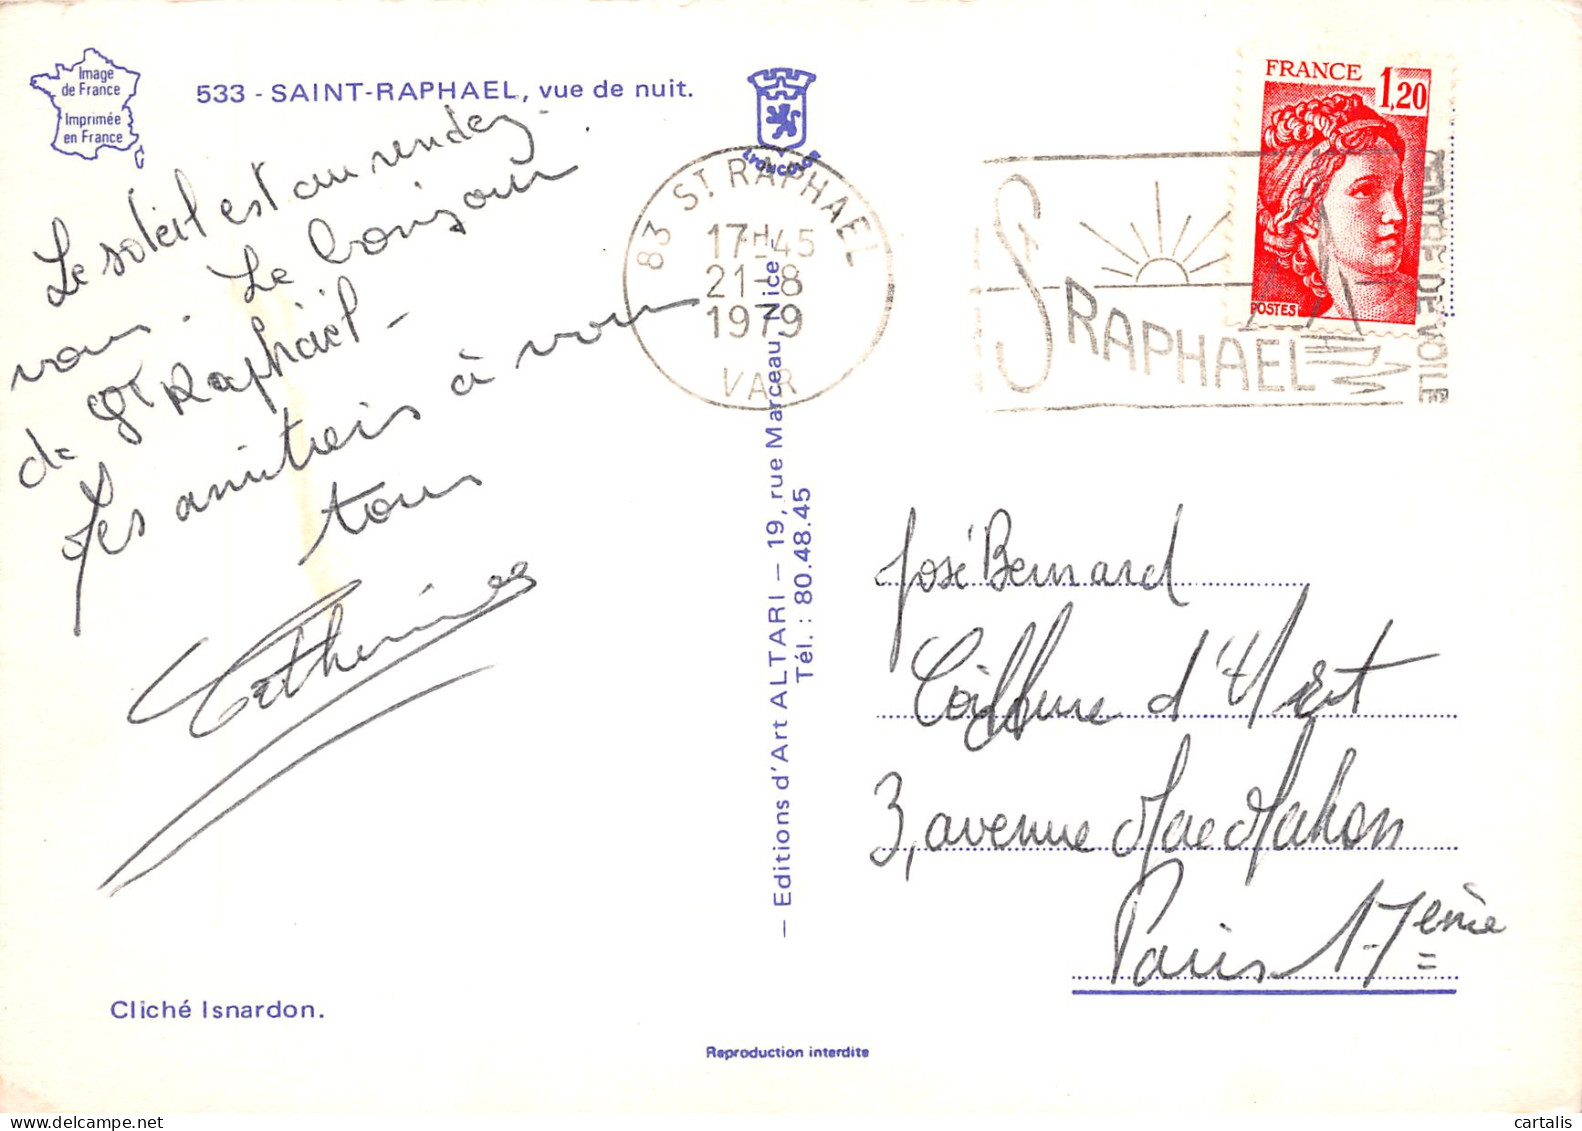 Image
de France
Imprimée
en France
533 - SAINT-RAPHAEL, vue de nuit.
LYONCOLOR
Le soleil est au rendez-
vous. Le bonjour
de St Raphaël -
Les amitiés à vous
tous
Catherine
83 ST RAPHAEL
17H45
21-8
1979
VAR
ST RAPHAEL
VAR
DE VOILE
FRANCE
1,20
POSTES
— Editions d'Art ALTARI — 19, rue Marceau, Nice -
Tél. : 80.48.45
José Bernard
Coiffure d'Art
3, avenue Mac Mahon
Paris 17ème
Cliché Isnardon.
Reproduction interdite
cartalis